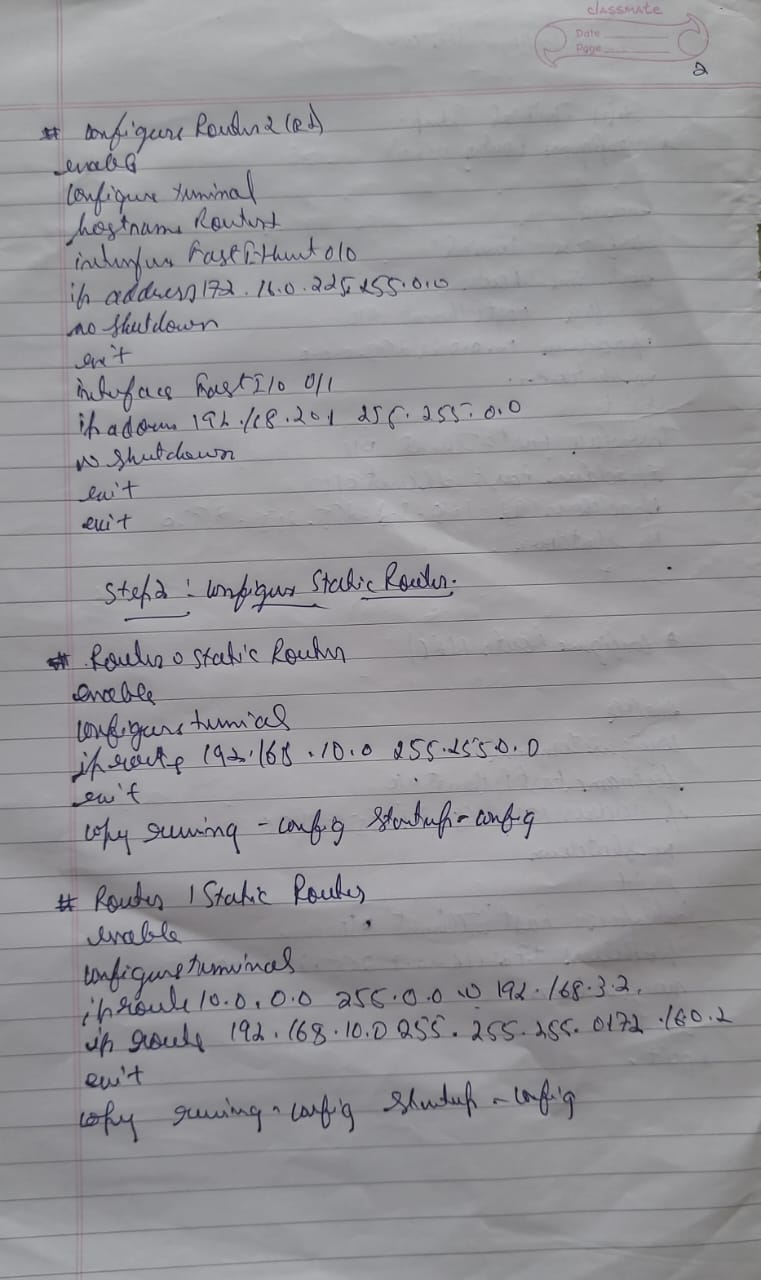 classmate
Date
Page
2
# Configure Router 2 (R2)
enable
Configure terminal
hostname Router
interface FastEthernet 0/0
ip address 172.16.0.2 255.255.0.0
no shutdown
exit
interface Fast 0/1
ip address 192.168.201 255.255.0.0
no shutdown
exit
exit
Step 2 : Configure Static Router.
# Router 0 Static Router
enable
Configure terminal
ip route 192.168.10.0 255.255.0.0
exit
copy running-config startup-config
# Router 1 Static Router
enable
configure terminal
ip route 10.0.0.0 255.0.0.0 192.168.3.2.
ip route 192.168.10.0 255.255.255.0 172.160.2
exit
copy running-config startup-config